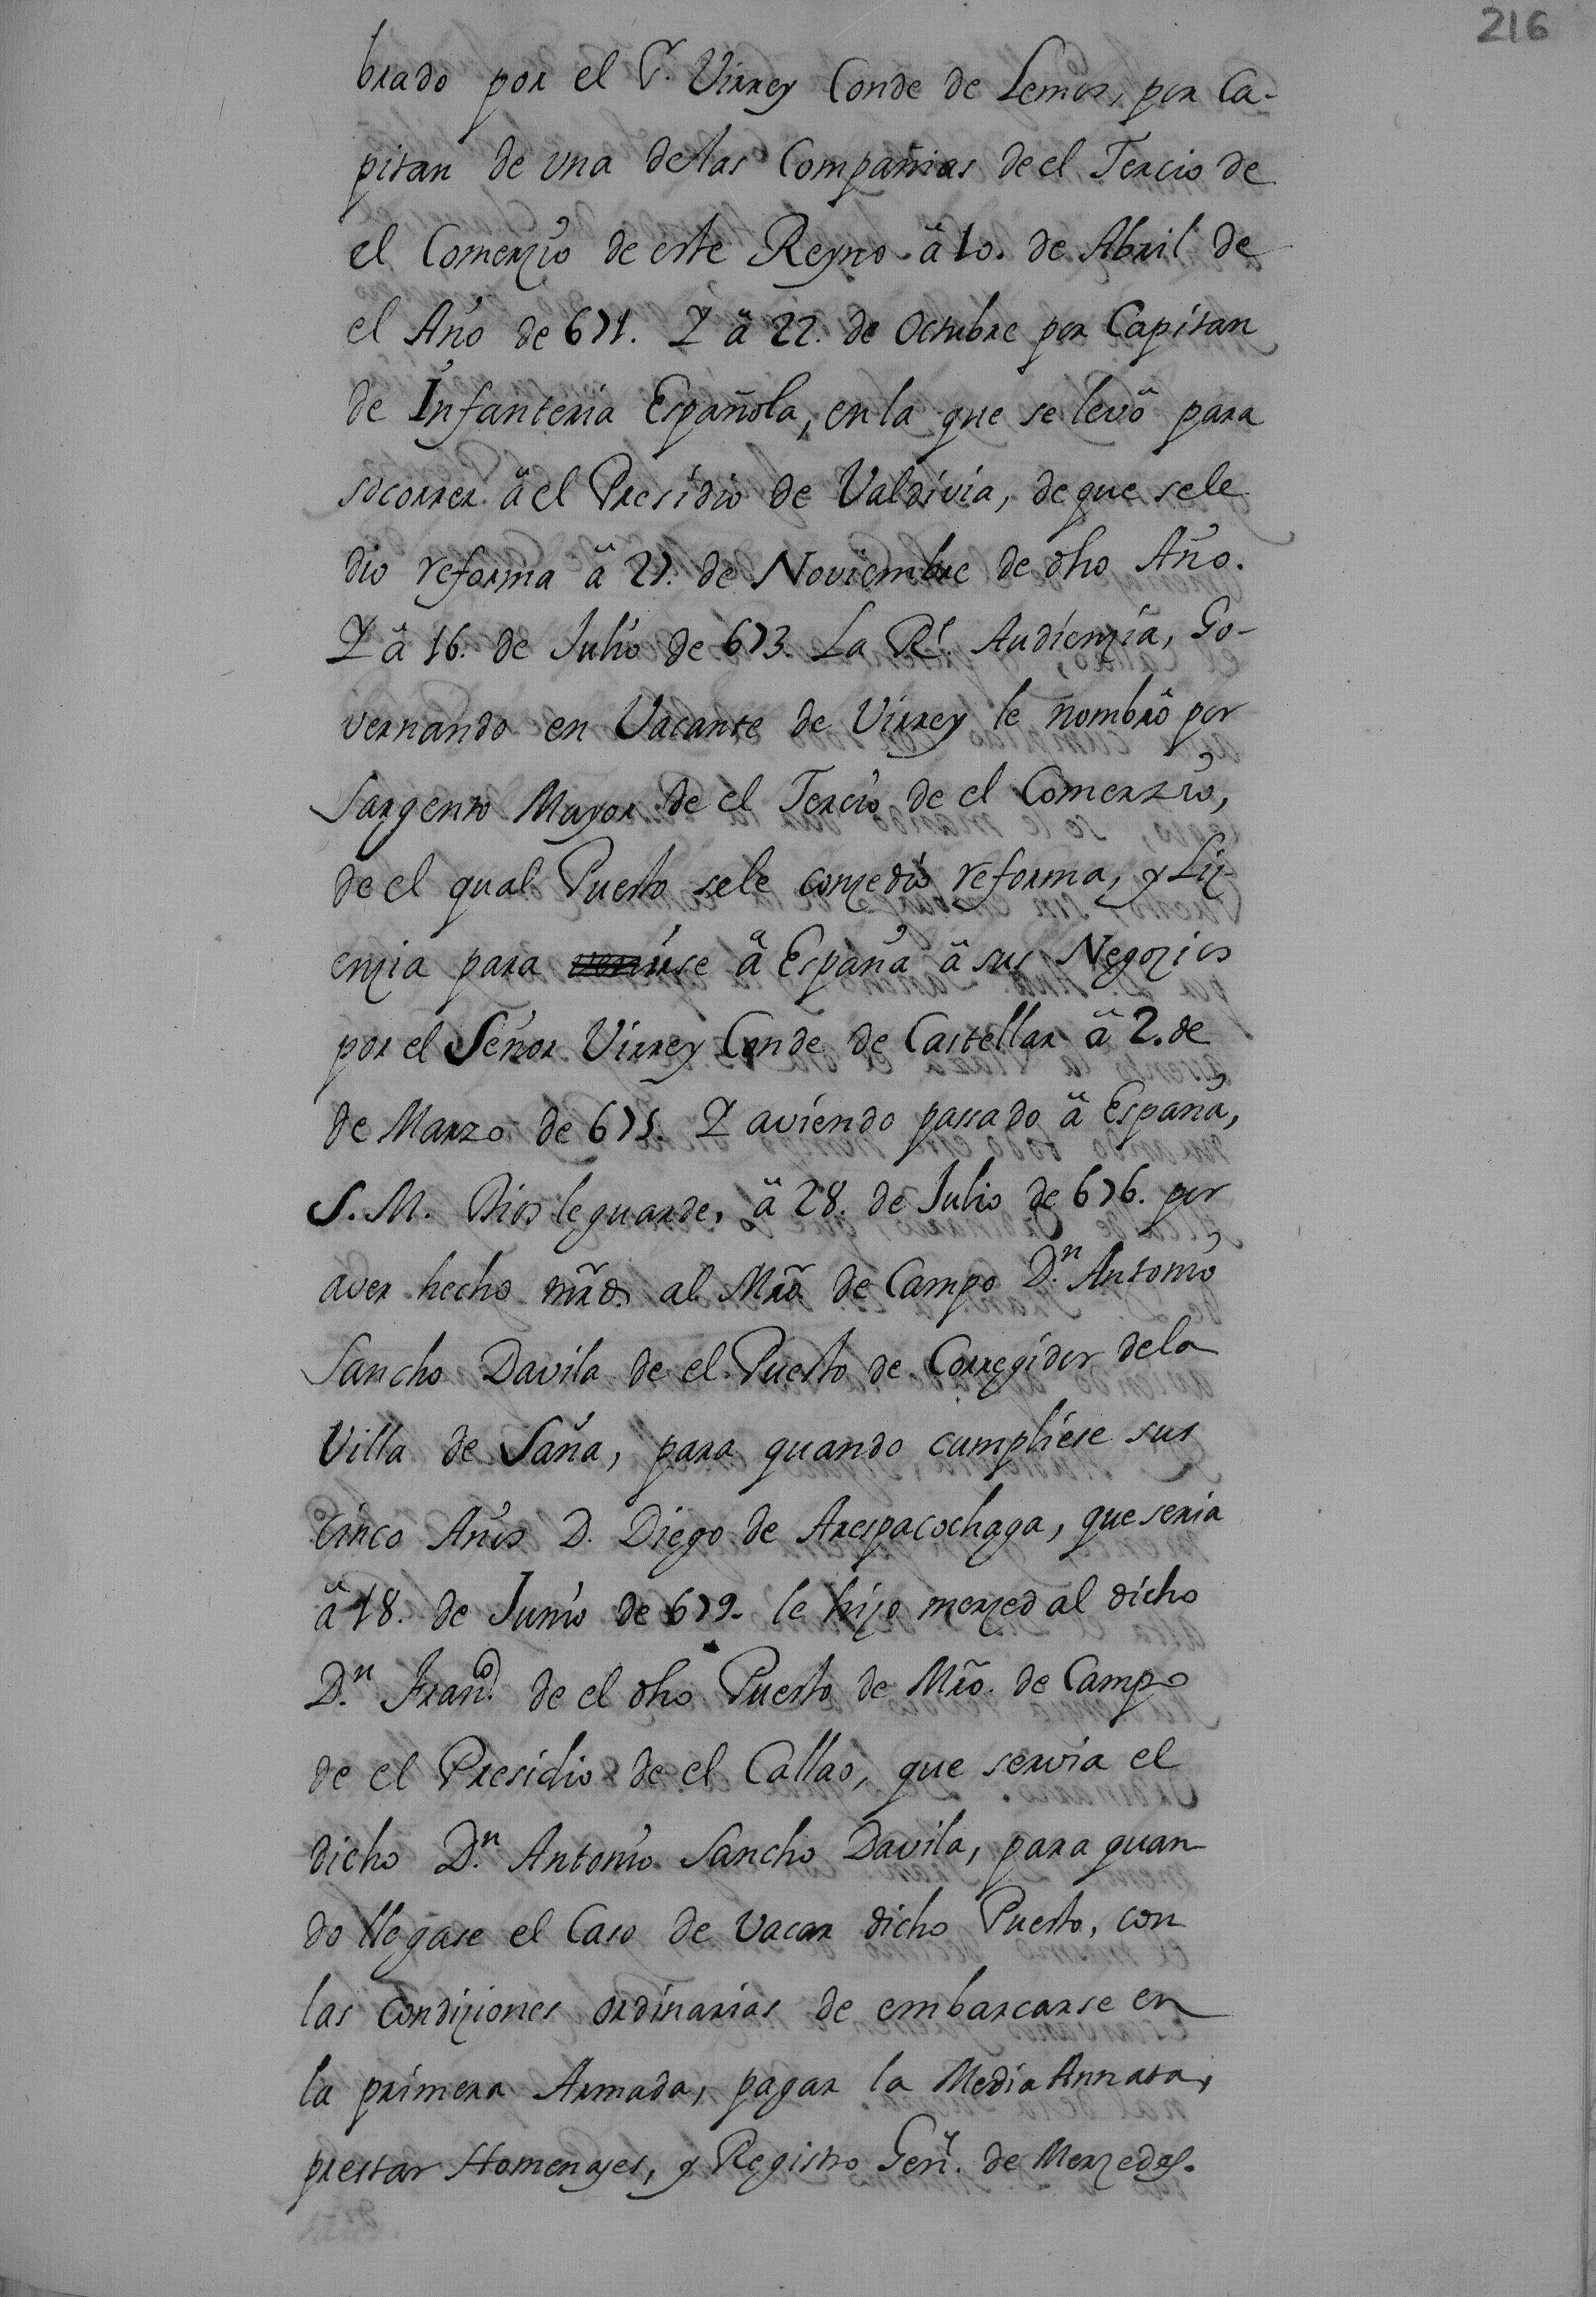 216
brado por el Sr. Virrey Conde de Lemos, por Ca-
pitan de una delas Compañias de el Tercio de
el Comerzio de este Reyno â 10. de Abril de
el Año de 671. Y â 22. de Octubre por Capitan
de Infanteria Española, en la que se levô para
socorrer â el Presidio de Valdivia, de que sele
dio reforma â 27. de Noviembre de dho Año.
Y â 16. de Julio de 673. La Rl. Audienzia, Go-
vernando en Vacante de Virrey le nombrô por
Sargento Mayor de el Tercio de el Comerzio,
de el qual Puesto sele conzedió reforma, y Liz-
enzia para irse â España â sus Negozios
por el Señor Virrey Conde de Castellar â 2. de
de Marzo de 675. Y aviendo passado â España,
S. M. Dios le guarde, â 28. de Julio de 676. por
aver hecho mrd. al Mro. de Campo Dn. Antonio
Sancho Davila de el Puesto de Corregidor dela
Villa de Saña, para quando cumpliese sus
Cinco Años D. Diego de Arespacochaga, que seria
â 18. de Junio de 679. le hizo merzed al dicho
Dn. Franco. de el dho Puesto de Mro. de Campo
de el Presidio de el Callao, que servia el
dicho Dn. Antonio Sancho Davila, para quan
do llegase el Caso de Vacar dicho Puesto, con
las Condiziones ordinarias de embarcarse en
la primera Armada, pagar la Media Annata,
prestar Homenajes, y Registro Genl. de Merzedes.